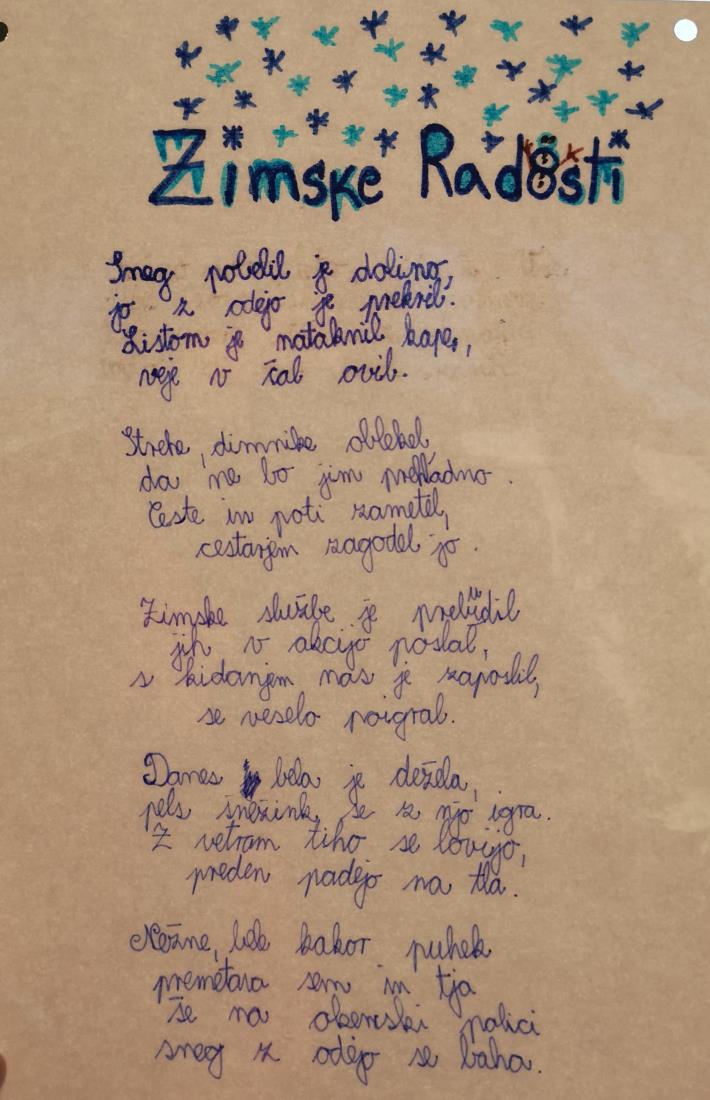 Zimske Radosti
Sneg pobelil je dolino,
jo z odejo je prekril.
Listom je nataknil kape,
veje v šal ovil.
Strehe, dimnike oblekel,
da ne bo jim prehladno.
Ceste in poti zametel,
cestarjem zagodel jo.
Zimske službe je prebudil
jih v akcijo poslal,
s kidanjem nas je zaposlil,
se veselo poigral.
Danes bela je dežela,
ples snežink se z njo igra.
Z vetram tiho se lovijo,
preden padejo na tla.
Nežne, bele kakor puhek
premetava sem in tja
še na okenski polici
sneg z odejo se baha.